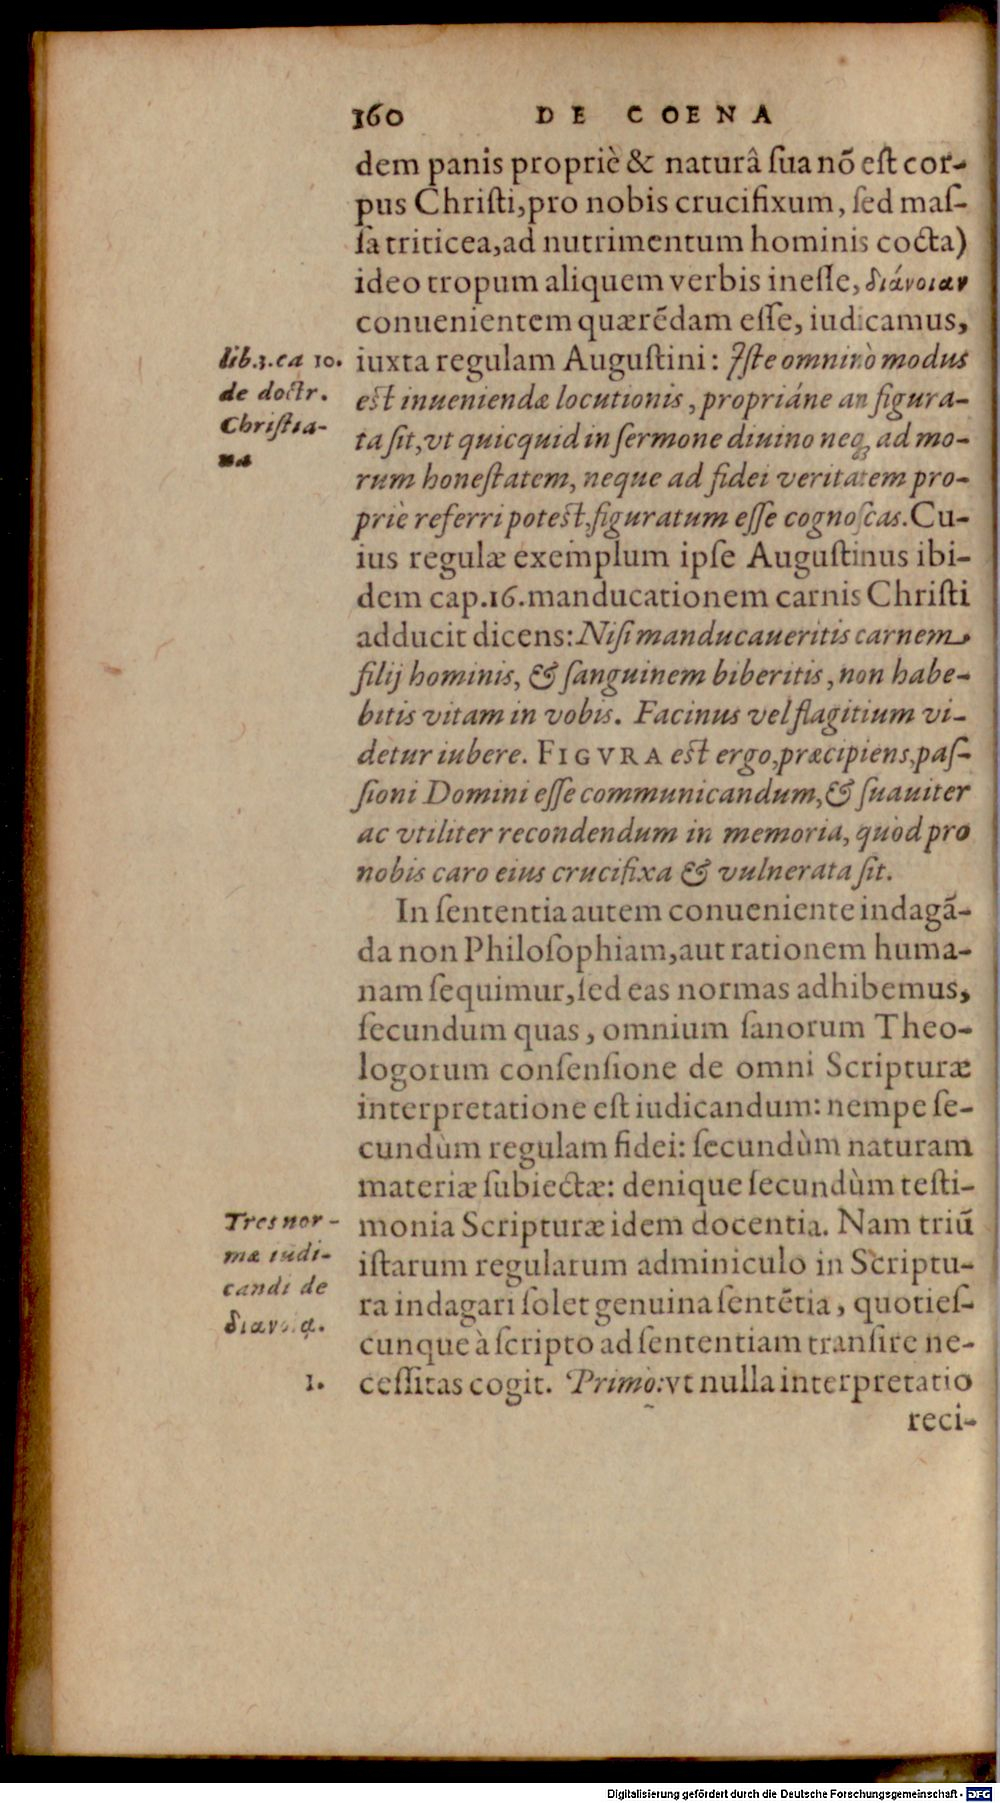 160 DE COENA
dem panis propriè & naturâ ſua nõ eſt cor-
pus Chriſti, pro nobis crucifixum, ſed maſ-
ſa triticea, ad nutrimentum hominis cocta)
ideo tropum aliquem verbis ineſſe, διάνοιαν
conuenientem quærẽdam eſſe, iudicamus,
iuxta regulam Auguſtini: Iſte omnino modus
eſt inueniendæ locutionis, propriáne an figura-
ta ſit, vt quicquid in ſermone diuino neq; ad mo-
rum honeſtatem, neque ad fidei veritatem pro-
priè referri poteſt, figuratum eſſe cognoſcas. Cu-
ius regulæ exemplum ipſe Auguſtinus ibi-
dem cap. 16. manducationem carnis Chriſti
adducit dicens: Niſi manducaueritis carnem
filij hominis, & ſanguinem biberitis, non habe-
bitis vitam in vobis. Facinus vel flagitium vi-
detur iubere. FIGVRA eſt ergo, præcipiens, paſ-
ſioni Domini eſſe communicandum, & ſuauiter
ac vtiliter recondendum in memoria, quòd pro
nobis caro eius crucifixa & vulnerata ſit.
In ſententia autem conueniente indagã-
da non Philoſophiam, aut rationem huma-
nam ſequimur, ſed eas normas adhibemus,
ſecundum quas, omnium ſanorum Theo-
logorum conſenſione de omni Scripturæ
interpretatione eſt iudicandum: nempe ſe-
cundùm regulam fidei: ſecundùm naturam
materiæ ſubiectæ: denique ſecundùm teſti-
monia Scripturæ idem docentia. Nam triũ
iſtarum regularum adminiculo in Scriptu-
ra indagari ſolet genuina ſentẽtia, quotieſ-
cunque à ſcripto ad ſententiam tranſire ne-
ceſſitas cogit. Primò: vt nulla interpretatio
reci-
lib. 3. ca 10.
de doctr.
Chriſtia-
na
Tres nor-
mæ iudi-
candi de
διανοίᾳ.
1.
Digitalisierung gefördert durch die Deutsche Forschungsgemeinschaft - DFG